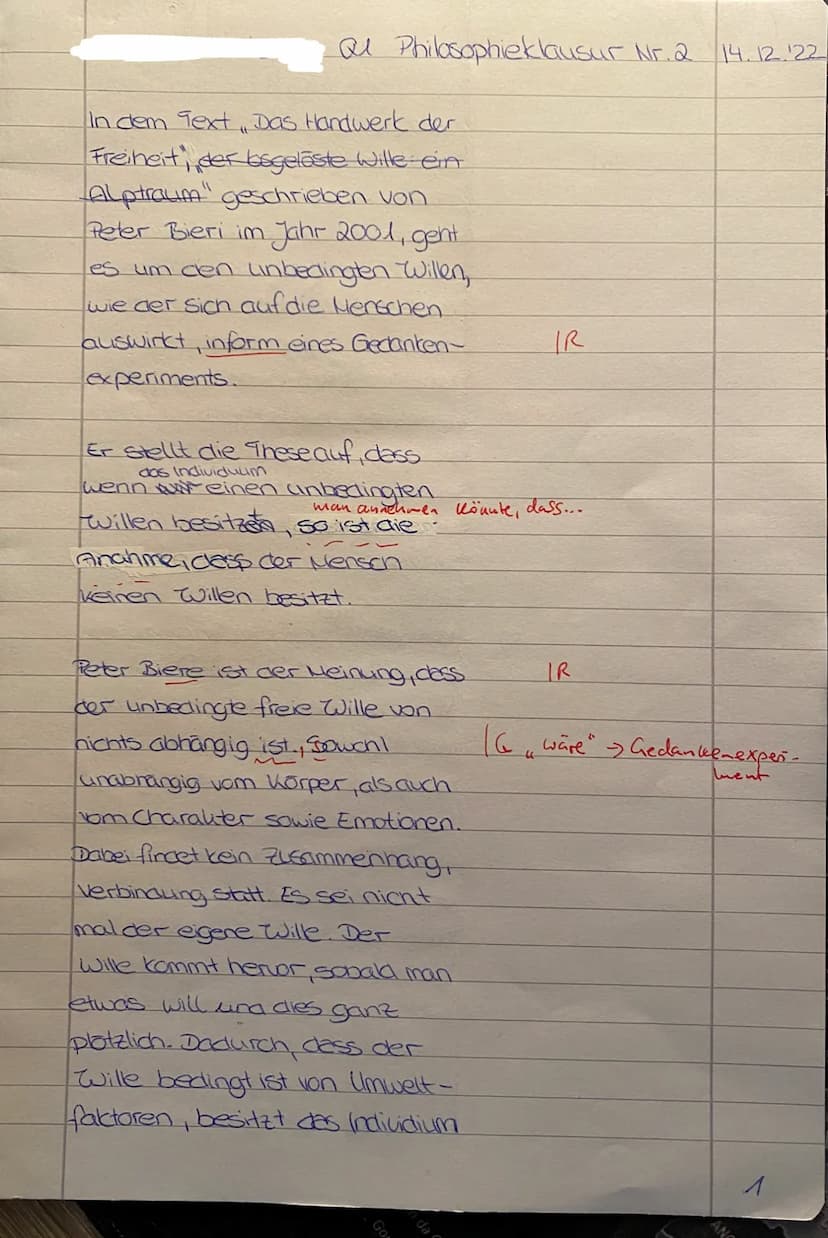 Q1 Philosophieklausur Nr. 2 14.12.'22
In dem Text „Das Handwerk der
Freiheit", „der losgelöste Wille ein
Alptraum" geschrieben von
Peter Bieri im Jahr 2001, geht
es um den unbedingten Willen,
wie der sich auf die Menschen
auswirkt, inform eines Gedanken- IR
experiments.
Er stellt die These auf, dass
das Individuum
wenn wir einen unbedingten
man annehmen könnte, dass...
Willen besitzt, so ist die
Anahme, dass der Mensch
keinen Willen besitzt.
Peter Biere ist der Meinung, dass IR
der unbedingte freie Wille von
nichts abhängig ist, sowohl IG „wäre" → Gedankenexperi-
ment
unabhängig vom Körper, als auch
vom Charakter sowie Emotionen.
Dabei findet kein Zusammenhang,
Verbindung statt. Es sei nicht
mal der eigene Wille. Der
Wille kommt hervor, sobald man
etwas will und dies ganz
plötzlich. Dadurch, dass der
Wille bedingt ist von Umwelt-
faktoren, besitzt das Individium
1